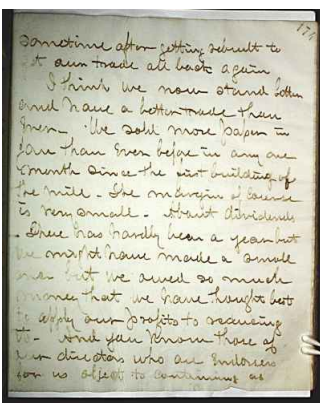 174
sometime after getting rebuilt to
get our trade all back again
I think we now stand better
and have a better trade than
Ever - We sold more paper in
Jan than Ever before in any one
month since the first building of
the mill. The margin of course
is very small - About dividends
There has hardly been a year but
we might have made a small
one but we owed so much
money that we have thought best
to apply our profits to reducing
it - And you know those of
our directors who are Endorsers
for us object to continuing as